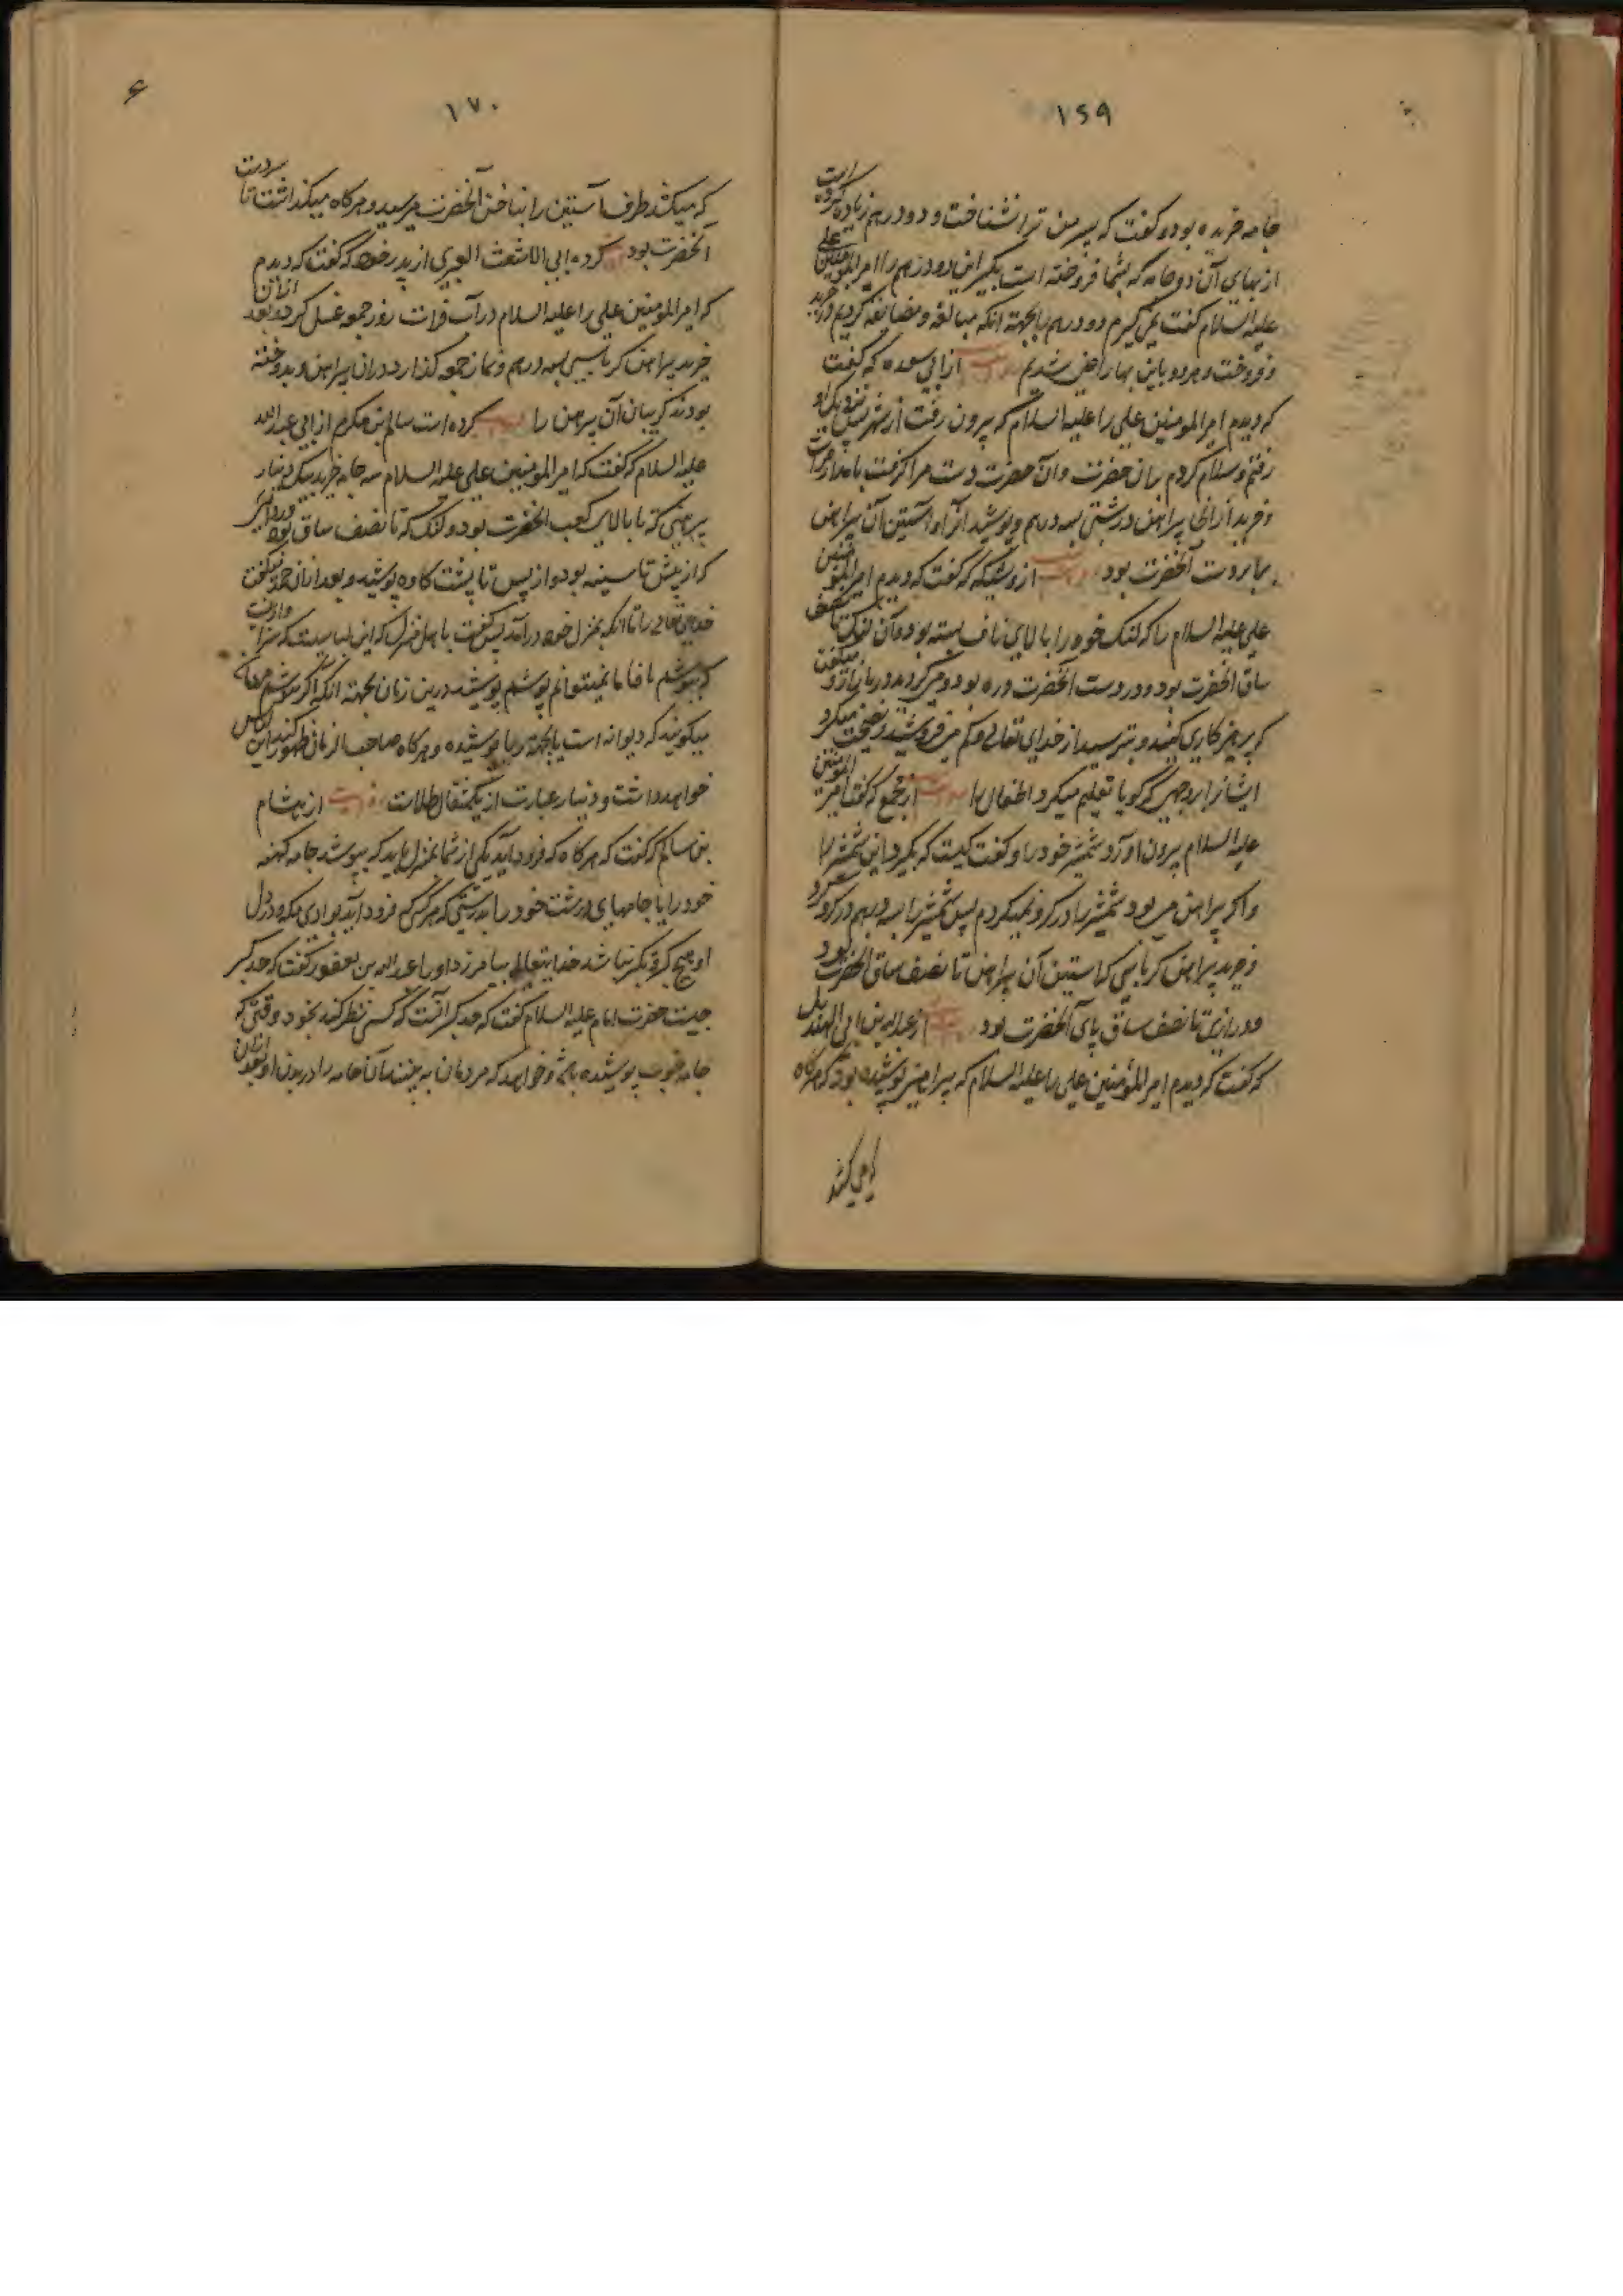 ۱۶۹
جامه خریده بود و گفت که پسر من ترا نشناخت و دو درهم زیاده گرفته است
از بهای آن دو جامه که بشما فروخته است بگیر این دو درهم را امیرالمؤمنین علی
علیه السلام گفت نمی گیرم دو درهم را بجهة آنکه مبالغه و مضایقه کردیم در خرید
و فروخت و هر دو باین بها راضی شدیم از ابی سعده که گفت
که دیدم امیرالمومنین علی را علیه السلام که بیرون رفت از شهر پس نزدیک او
رفتم و سلام کردم بان حضرت و آن حضرت دست مرا گرفت
و خرید از آنجا پیراهن درشتی بسه درهم و پوشید آنرا و آستین آن پیراهن
برابر دست آنحضرت بود از وشیکه که گفت که دیدم امیرالمؤمنین
علی علیه السلام را که لنگ خود را بالای ناف بسته بود و آن لنگ تا نصف
ساق آنحضرت بود و در دست آنحضرت دره بود و می گردید در بازار و میگفت
که پرهیزکاری کنید و بترسید از خدای تعالی و کم مفروشید و نصیحت میکرد
ایشانرا بوجهی که گویا تعلیم میکرد اطفال را از مجمع که گفت امیرالمؤمنین
علیه السلام بیرون آورد شمشیر خود را و گفت کیست که بگیرد این شمشیر را
و اگر پیراهن می بود شمشیر را در گرو نمیکردم پس شمشیر را بسه درهم در گرو کرد
و خرید پیراهن کرباسی که آستین آن پیراهن تا نصف ساق آنحضرت بود
و درازی تا نصف ساق پای آنحضرت بود از عبدالله بن ابی الهذیل
که گفت که دیدم امیرالمؤمنین علی را علیه السلام که پیراهنی پوشیده بود که هرگاه
که می کشد
۱۷۰
که میکشد طرف آستین را بناخن آنحضرت میرسید و هرگاه میگذاشت تا بردست
آنحضرت بود کرده ابی الاشعث العبری از پدر خود که گفت که دیدم
که امیرالمومنین علی را علیه السلام در آب فرات روز جمعه غسل کرد و بعد از آن
خرید پیراهن کرباسی بسه درهم و نماز جمعه گذارد در آن پیراهن و ندوخته
بودند گریبان آن پیراهن را کرده است سالم بن مکرم از ابی عبدالله
علیه السلام که گفت که امیرالمؤمنین علی علیه السلام سه جامه خرید بیک دینار
پیرهنی که تا بالای کعب آنحضرت بود و لنگ که تا نصف ساق بود و ردائی
که از پیش تا سینه بود و از پس تا پشت گاه پوشید و بعد از آن حمد میگفت
خدای تعالی را تا آنکه بمنزل خود درآمد پس گفت باهل منزل که این لباسیست که سزاوار است
که بپوشم اما نمیتوانم پوشم پوشید درین زمان بجهة آنکه اگر بپوشم
میگویند که دیوانه است یا بجهة ریا پوشیده و هرگاه صاحب الزمان ظهور کند این لباس
خواهد داشت و دینار عبارت از یکمثقال طلاست از هشام
بن سالم که گفت که هرگاه که فرود آید یکی از شما بمنزل باید که بپوشد جامه کهنه
خود را یا جامهای درشت خود را بدرستی که هرکس که فرود آید بوادی مکه و در دل
او هیچ کبر نباشد خدایتعالی بیامرزد او را عبدالله بن یعفور گفت که حد کبر
چیست حضرت امام علیه السلام گفت که حد کبر آنست که کسی نظر کند بخود وقتی که
جامه خوب پوشیده باشد و خواهد که مردمان به بینند آن جامه را در بدن او بعد از آن